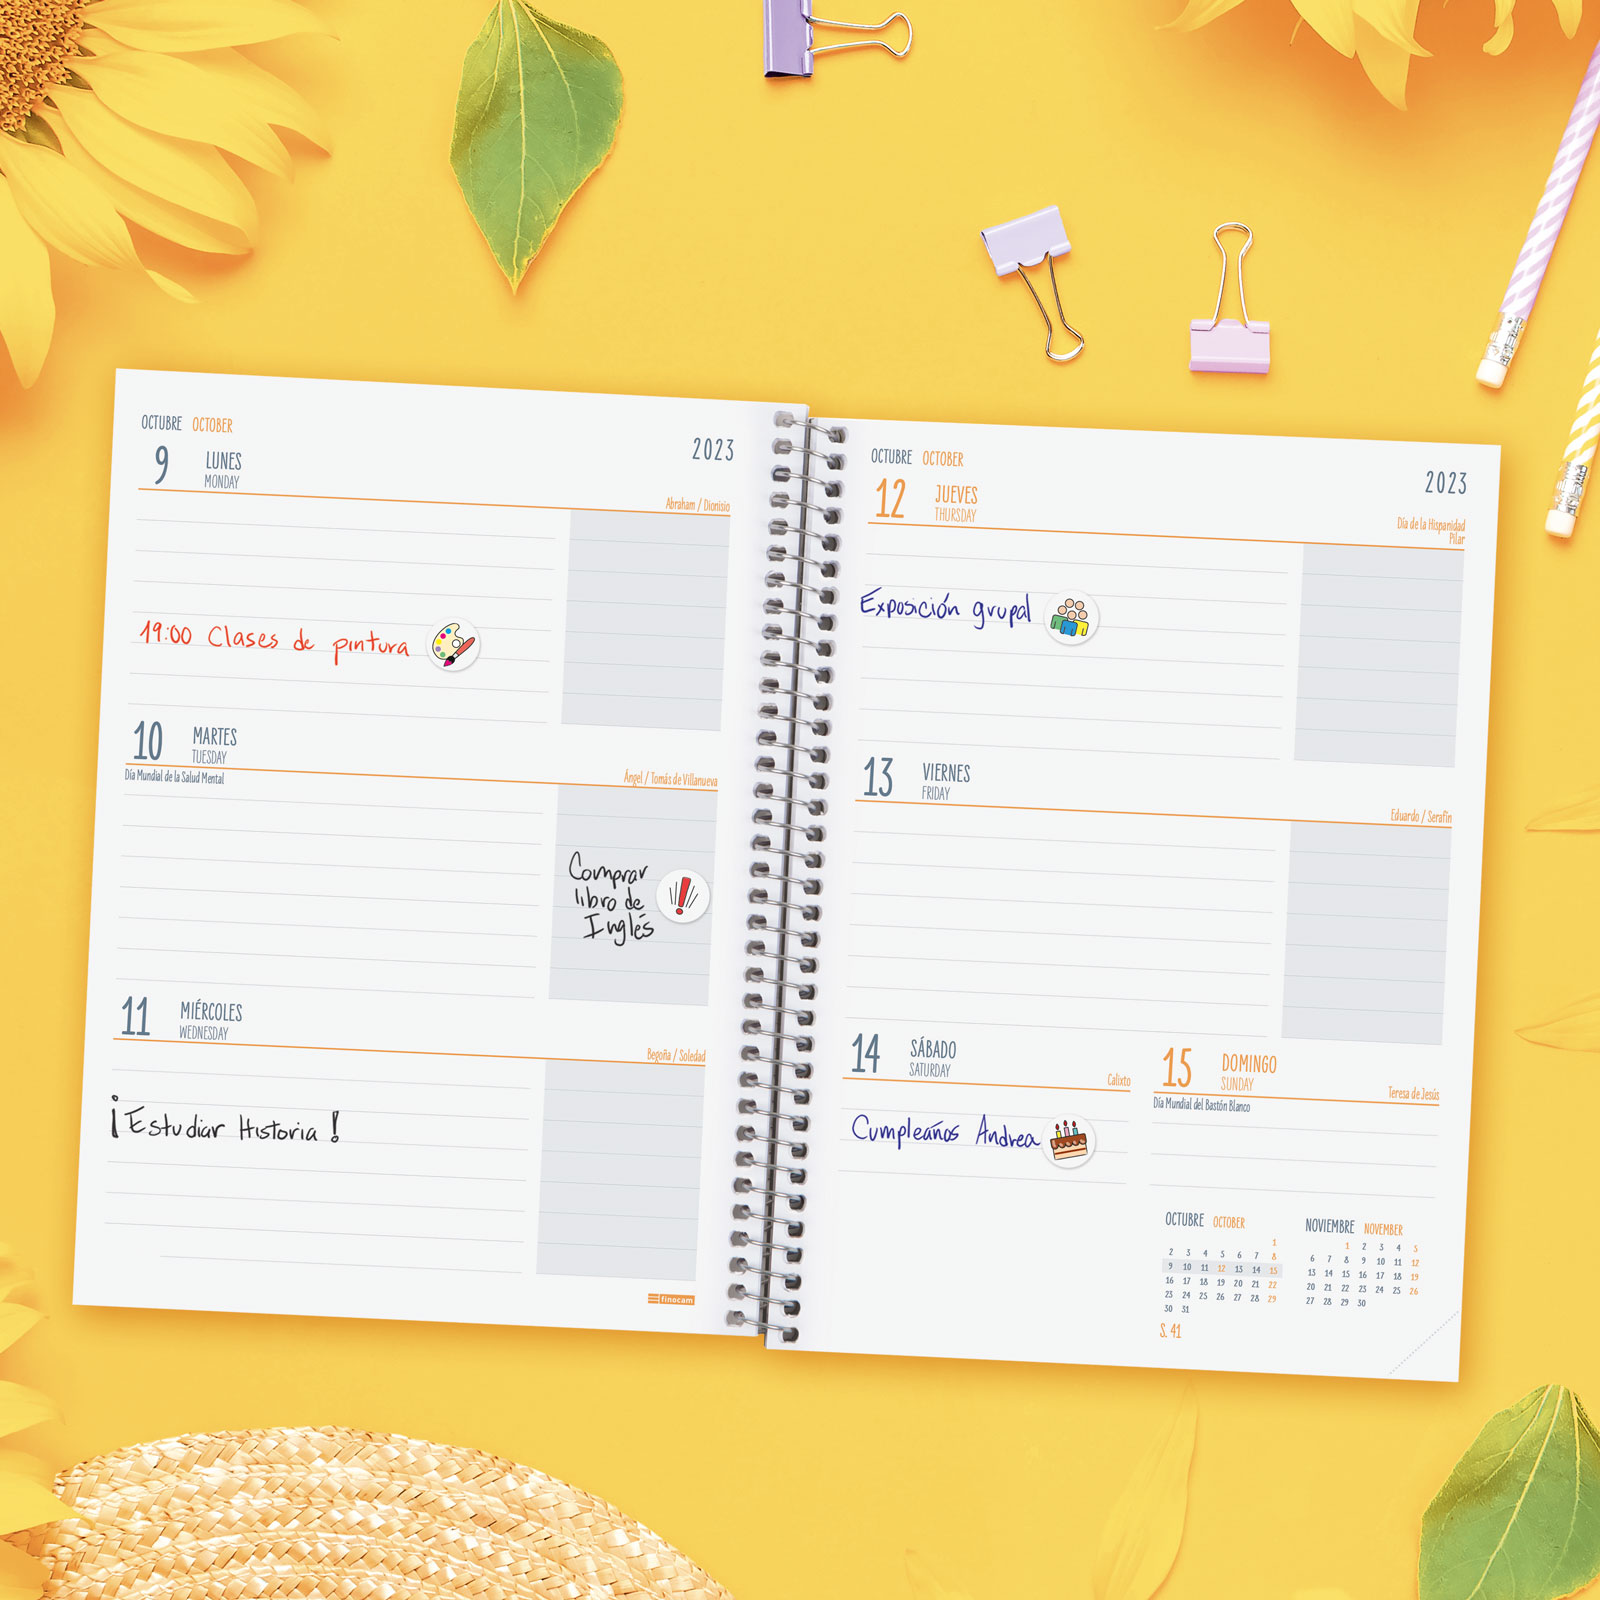 OCTUBRE OCTOBER
2023
9 LUNES
MONDAY
Abraham / Dionisio
19:00 Clases de pintura
10 MARTES
TUESDAY
Día Mundial de la Salud Mental
Ángel / Tomás de Villanueva
Comprar
libro de
Inglés
11 MIÉRCOLES
WEDNESDAY
Begoña / Soledad
¡Estudiar Historia!
finocam
OCTUBRE OCTOBER
2023
12 JUEVES
THURSDAY
Día de la Hispanidad
Pilar
Exposición grupal
13 VIERNES
FRIDAY
Eduardo / Serafín
14 SÁBADO
SATURDAY
Calixto
Cumpleaños Andrea
15 DOMINGO
SUNDAY
Teresa de Jesús
Día Mundial del Bastón Blanco
OCTUBRE OCTOBER
1
2 3 4 5 6 7 8
9 10 11 12 13 14 15
16 17 18 19 20 21 22
23 24 25 26 27 28 29
30 31
S. 41
NOVIEMBRE NOVEMBER
1 2 3 4 5
6 7 8 9 10 11 12
13 14 15 16 17 18 19
20 21 22 23 24 25 26
27 28 29 30